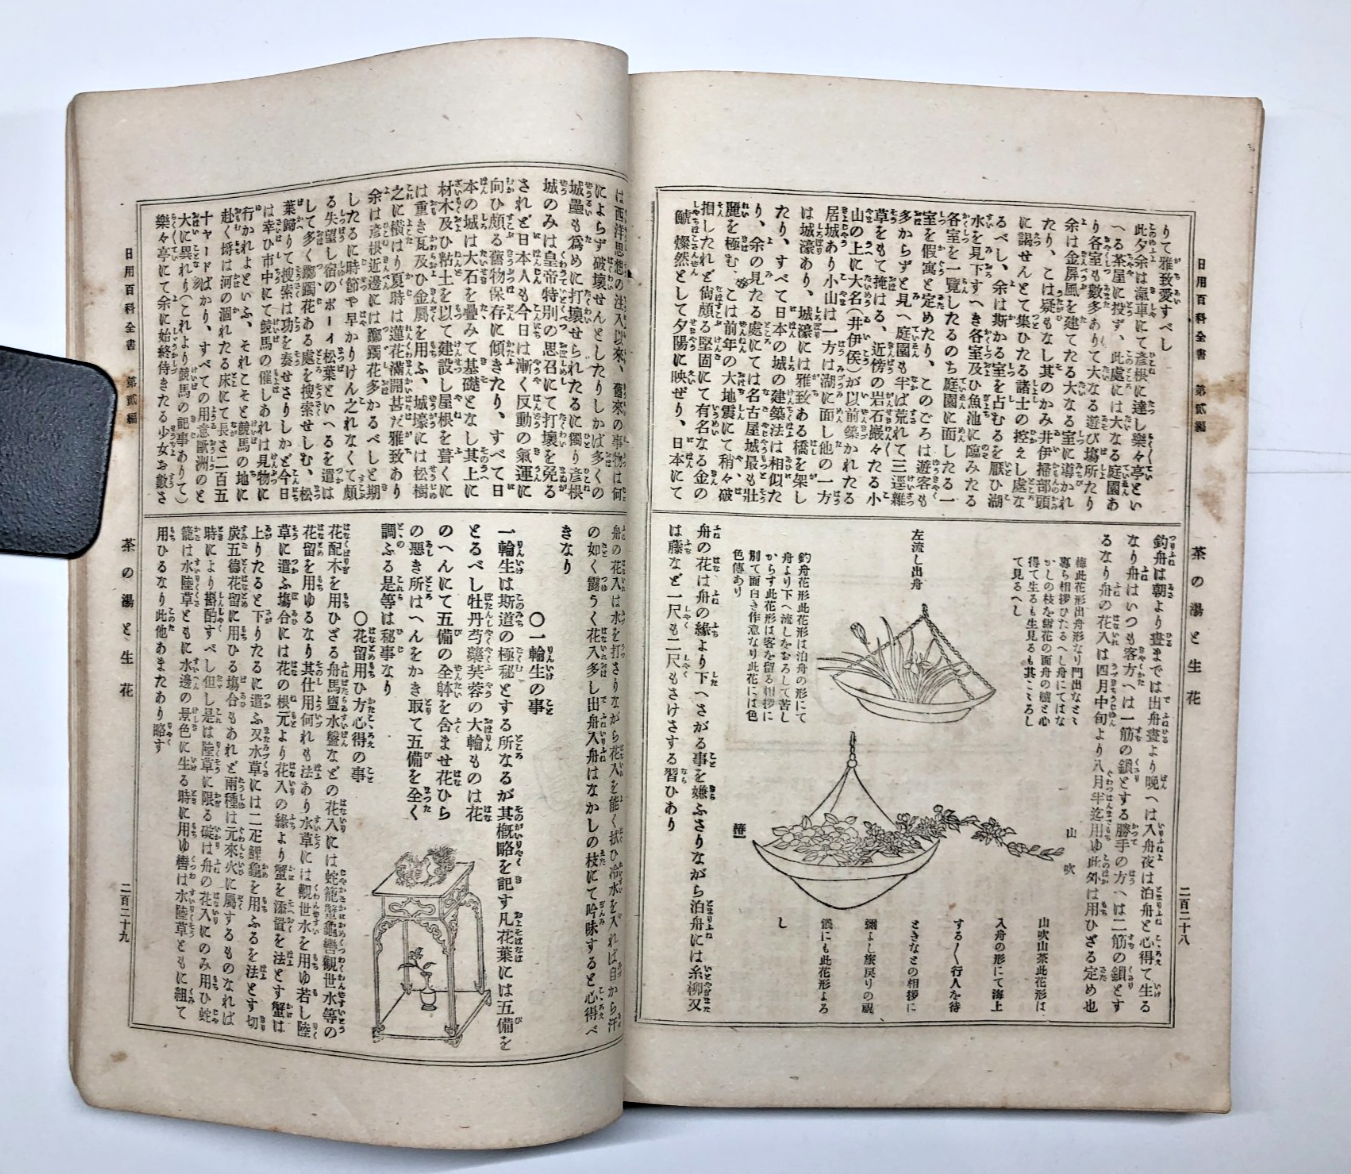 日用百科全書 第貳編
茶の湯と生花
二百二十八
りて雅致愛すべし
此夕余は滊車にて彥根に達し樂々亭とい
へる茶屋に投ず、此處には大なる庭園あ
り各室も數多ありて大なる遊び場所たり
余は金屛風を建てたる大なる室に導かれ
たり、こは疑もなし其のかみ井伊掃部頭
に謁せんとて集ひたる諸士の控えし處な
るべし、余は斯かる室を占むるを厭ひ湖
水を見下すべき各室及ひ魚池に臨みたる
各室を一覽したるのち庭園に面したる一
室を假寓と定めたり、このごろは遊客も
多からずと見へ庭園も半ば荒れて三逕雜
草をもて掩はる、近傍の岩石巖々たる小
山の上に大名(井伊侯)が以前築かれたる
居城あり小山は一方は湖に面し他の一方
は城濠あり、城濠には雅致ある橋を架し
たり、すべて日本の城の建築法は相似た
り、余の見たる處にては名古屋城最も壯
麗を極む、こは前年の大地震にて稍々破
損したれど尙頗る堅固にて有名なる金の
鯱 燦然として夕陽に映ぜり、日本にて
釣舟は朝より晝までは出舟晝より晩へは入舟夜は泊舟と心得て生る
なり舟はいつも客方へは一筋の鎖とする勝手の方へは二筋の鎖とす
るなり舟の花入は四月中旬より八月半迄用ゆ此外は用ひざる定め也
椿此花形出舟形なり門出などに
專ら相挨ひたるへし舟にてはな
かしの枝を留花の面舟の艫と心
得て生るも生見るも其こころし
て見るへし
左流し出舟
釣舟花形此花形は泊舟の形にて
舟より下へ流しをおろして苦し
からす此花形は客を留る相挨に
別て面白き作意なり此花には色
色傳あり
山吹
山吹山茶此花形は
入舟の形にて海上
する〳〵行人を待
ときなとの相挨に
彌よし旅戾りの視
儀にも此花形よろ
し
椿
舟の花は舟の緣より下へさがる事を嫌ふさりながら泊舟には糸柳又
は藤など一尺も二尺もさけさする習ひあり
は西洋思想の注入以來、舊來の事物は何
によらず破壞せんとしたりしかば多くの
城壘も爲めに打壞せられたるに獨り彥根
城のみは皇帝特別の思召にて打壞を免る
されど日本人も今日は漸く反動の氣運に
向ひ頗る舊物保存に傾きたり、すべて日
本の城は大石を疊みて基礎となし其上に
材木及ひ粘土を以て建設し屋根を葺くに
は重き瓦及ひ金属を用ふ、城壕には松樹
之に橫はり夏時は蓮花滿開甚だ雅致あり
余は彥根近邊には躑躅花多かるべしと期
したるに時節や早かりけん之れなくて頗
る失望し宿のボーイ松葉といへるを遣は
して多く躑躅花ある處を搜索せしむ、松
葉歸りて搜索は功を奏せさりしかど今日
は幸ひ市中にて競馬の催しあれは見物に
行かれよといふ、それこそと競馬の地に
赴く塲は河の涸れたる床にて長さ二百五
十ヤードばかり、すべての用意歐洲のと
大に異れり(これより競馬の記事ありて)
樂々亭にて余に始終侍きたる少女お數さ
舟の花入は水を打さりながら花入を能く拭ひ冷水を入れば自から汗
の如く露うく花入多し出舟入舟はなかしの枝にて吟味すると心得べ
きなり
〇一輪生の事
一輪生は斯道の極秘とする所なるが其槪略を記す凡花葉には五備を
とるべし牡丹芍藥芙蓉の大輪ものは花
のへんにて五備の全躰を含ませ花ひら
の悪き所はへんをかき取て五備を全く
調ふる是等は秘事なり
〇花留用ひ方心得の事
花配木を用ひざる舟馬盥水盤などの花入には蛇籠蟹龜轡觀世水等の
花留を用ゆるなり其仕用何れも法あり水草には觀世水を用ゆ若し陸
草に遣ふ塲合には花の根元より花入の緣より蟹を添置を法とす蟹は
上りたると下りたるに遣ふ又水草には二疋鯉龜を用ふるを法とす切
炭五德花留に用ひる塲合もあれど兩種は元來火に屬するものなれば
時により斟酌すべし但し是は陸草に限る碇は舟の花入にのみ用ひ蛇
籠は水陸草とも水邊の景色に生る時に用ゆ轡は水陸草ともに組て
用ひるなり此他あまたあり略す
日用百科全書 第貳編
茶の湯と生花
二百二十九